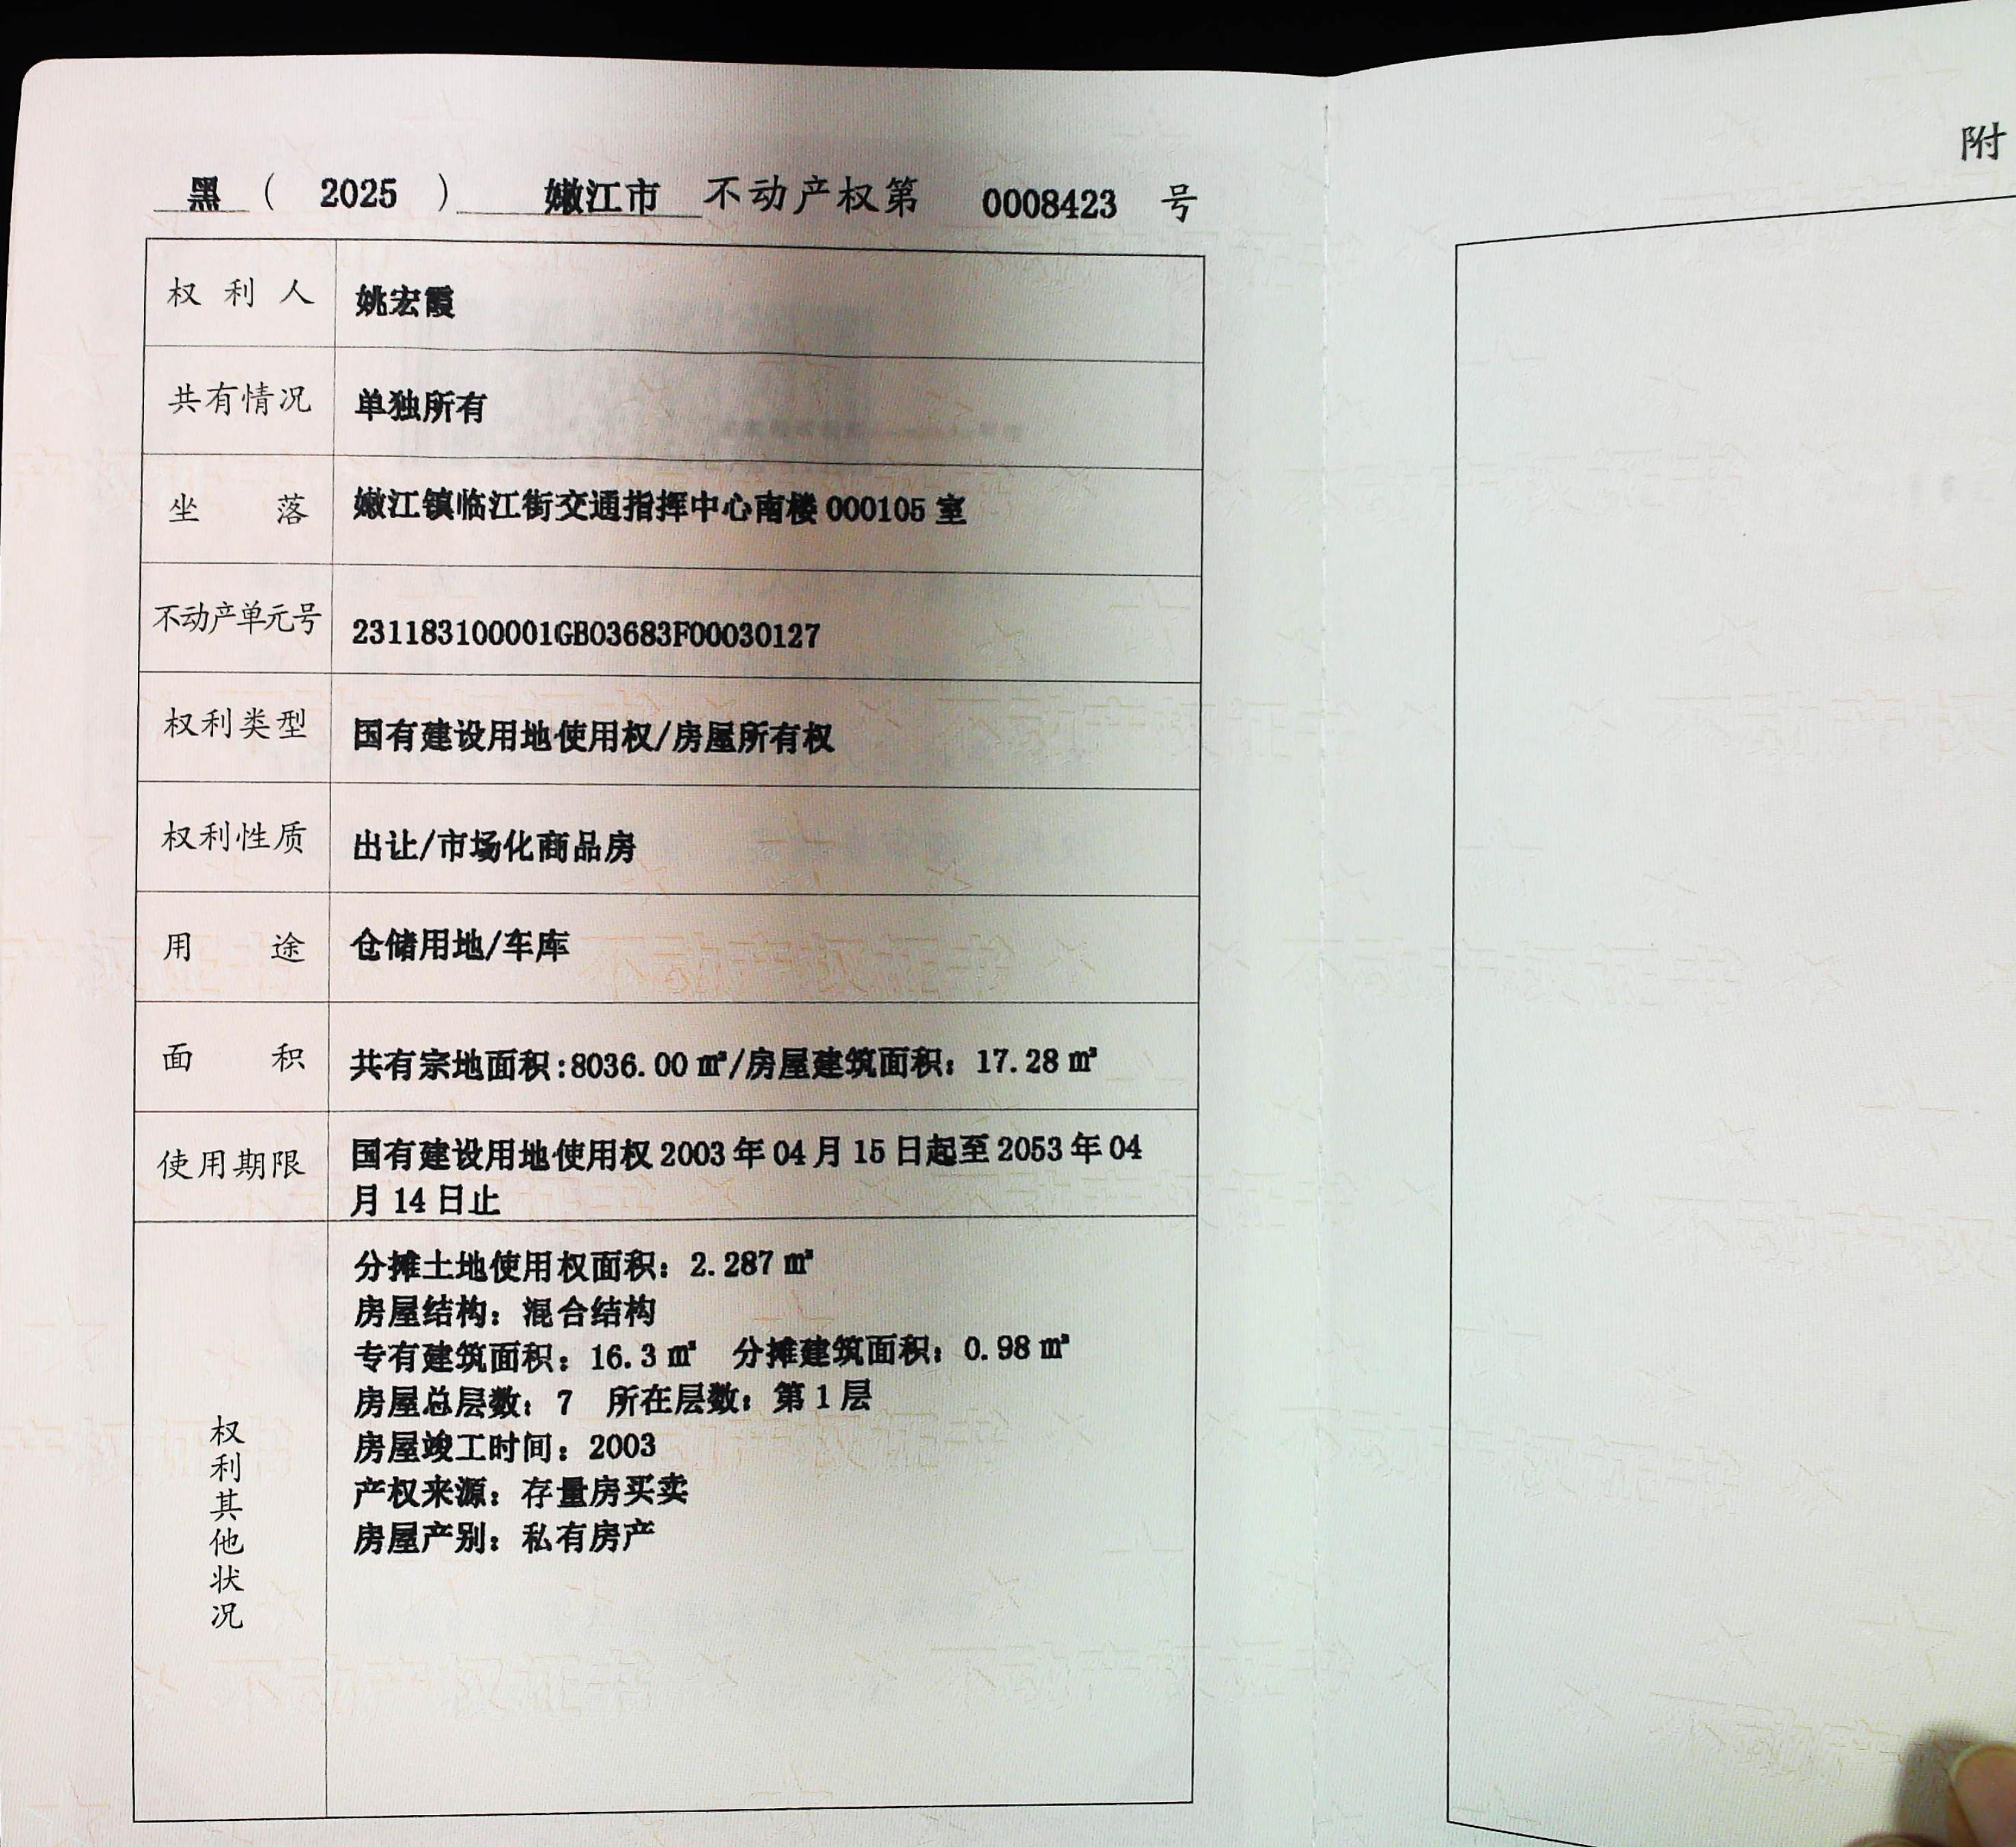 黑（ 2025 ） 嫩江市 不动产权第 0008423 号
附
权利人 姚宏霞
共有情况 单独所有
坐落 嫩江镇临江街交通指挥中心南楼 000105 室
不动产单元号 231183100001GB03683F00030127
权利类型 国有建设用地使用权/房屋所有权
权利性质 出让/市场化商品房
用途 仓储用地/车库
面积 共有宗地面积:8036.00 ㎡/房屋建筑面积：17.28 ㎡
使用期限 国有建设用地使用权 2003 年 04 月 15 日起至 2053 年 04
月 14 日止
权利其他状况
分摊土地使用权面积：2.287 ㎡
房屋结构：混合结构
专有建筑面积：16.3 ㎡ 分摊建筑面积：0.98 ㎡
房屋总层数：7 所在层数：第 1 层
房屋竣工时间：2003
产权来源：存量房买卖
房屋产别：私有房产